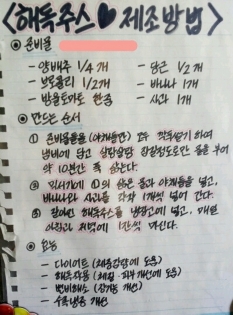 <해독주스♥제조방법>
◎ 준비물
- 양배추 1/4개
- 당근 1/2개
- 브로콜리 1/2개
- 바나나 1개
- 방울토마토 한줌
- 사과 1개
◎ 만드는 순서
① 준비물들을 (야채들만) 모두 깍둑썰기 하여
냄비에 담고 살랑살랑 잠길정도로만 물을 부어
약 10분간 푹 삶는다.
② 믹서기에 ①의 삶은 물과 야채들을 넣고,
바나나와 사과를 각각 1개씩 넣어 간다.
③ 갈아낸 해독주스를 냉장고에 넣고, 매일
아침과 저녁에 1잔씩 마신다.
◎ 효능
- 다이어트 (체중감량에 도움)
- 해독작용 (체질·피부개선에 도움)
- 변비해소 (장기능 개선)
- 수족냉증 개선